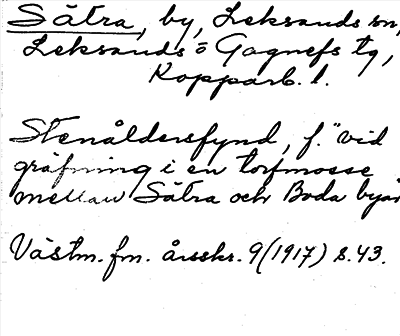 Sätra, by, Leksands sn,
Leksands o Gagnefs tg,
Kopparb. l.
Stenåldersfynd, f. "vid
gräfning i en torfmosse
mellan Sätra och Boda byar
Västm. fm. årsskr. 9 (1917) s. 43.